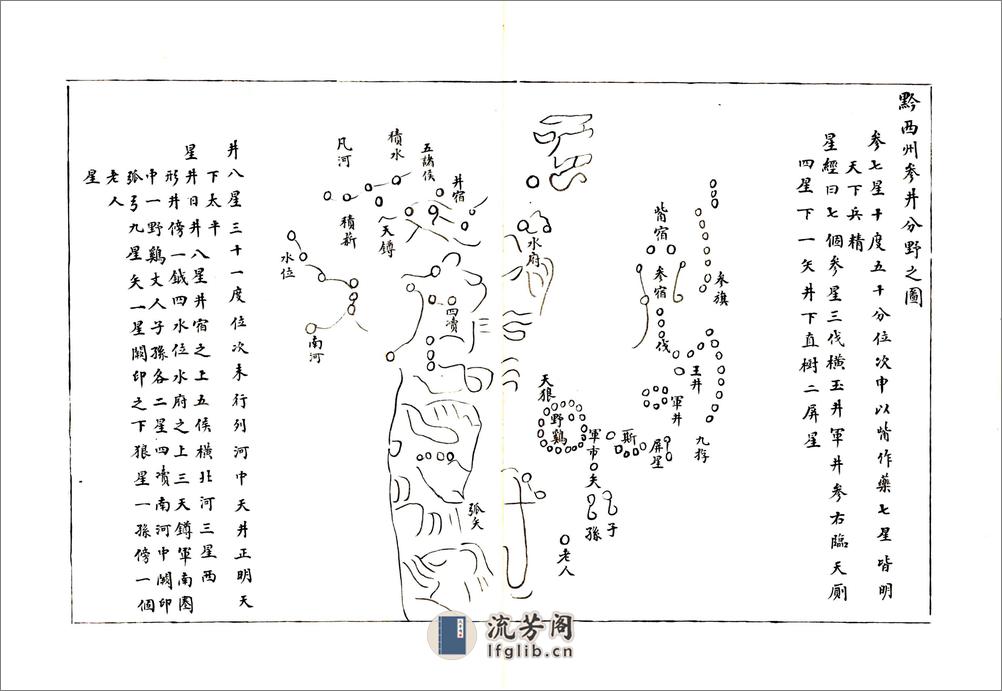 黔西州參井分野之圖
參七星十度五十分位次申以觜作藥七星皆明
天下兵精
星經曰七個參星三伐橫玉井軍井參右臨天厠
四星下一矢井下直樹二屏星
觜宿
參宿
伐
參旗
玉井
軍井
九斿
屏星
廁
軍市
野鷄
天狼
矢
子
孫
老人
水府
井宿
五諸侯
積水
天鐏
積薪
凡河
水位
南河
四瀆
弧矢
井八星三十一度位次未行列河中天井正明天
下太平
星井日井八星井宿之上五侯橫北河三星西
形井傍一鉞四水位水府之上三天鐏軍南圂
巾一野鷄丈人子孫各二星四瀆南河中闕印
弧弓九星矢一星闕印之下狼星一孫傍一個
老人
星
流芳阁
lfglib.cn